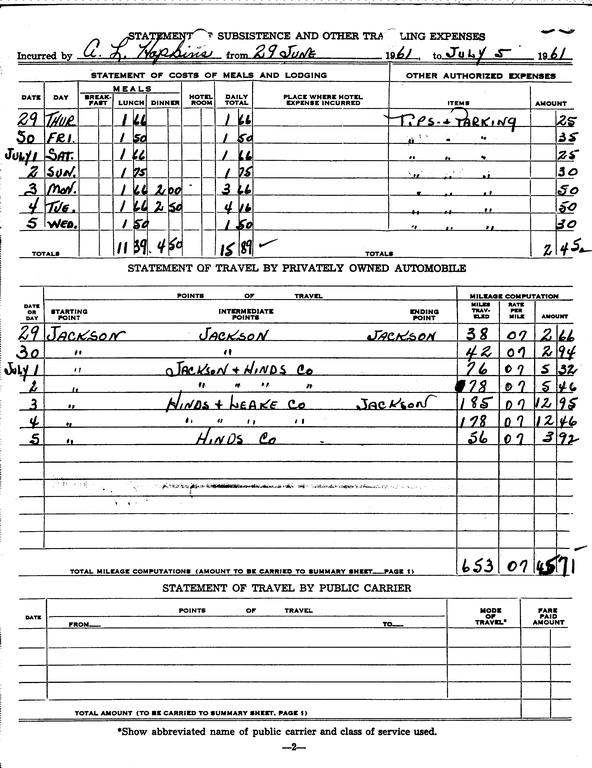 STATEMENT SUBSISTENCE AND OTHER TRA LING EXPENSES
Incurred by A. L. Hopkins from 29 JUNE 1961, to JULY 5 1961
STATEMENT OF COSTS OF MEALS AND LODGING OTHER AUTHORIZED EXPENSES
MEALS
DATE DAY BREAK-FAST LUNCH DINNER HOTEL ROOM DAILY TOTAL PLACE WHERE HOTEL EXPENSE INCURRED ITEMS AMOUNT
29 THUR 1 66 1 66 TIPS + PARKING 25
30 FRI. 1 50 1 50 " " " 35
JULY 1 SAT. 1 66 1 66 " " " 25
2 SUN. 1 75 1 75 " " " 30
3 MON. 1 66 2 00 3 66 " " " 50
4 TUE. 1 66 2 50 4 16 " " " 50
5 WED. 1 50 1 50 " " " 30
TOTALS 11 39. 4 50 15 89 ✓ TOTALS 2 45
STATEMENT OF TRAVEL BY PRIVATELY OWNED AUTOMOBILE
POINTS OF TRAVEL MILEAGE COMPUTATION
DATE OR DAY STARTING POINT INTERMEDIATE POINTS ENDING POINT MILES TRAV-ELED RATE PER MILE AMOUNT
29 JACKSON JACKSON JACKSON 38 07 2 66
30 " " 42 07 2 94
JULY 1 " JACKSON + HINDS CO 76 07 5 32
2 " " " " " 78 07 5 46
3 " HINDS + LEAKE CO JACKSON 185 07 12 95
4 " " " " " 178 07 12 46
5 " HINDS CO 56 07 3 92
TOTAL MILEAGE COMPUTATIONS (AMOUNT TO BE CARRIED TO SUMMARY SHEET—PAGE 1) 653 07 45 71
STATEMENT OF TRAVEL BY PUBLIC CARRIER
DATE POINTS OF TRAVEL MODE OF TRAVEL* FARE PAID AMOUNT
FROM— TO—
TOTAL AMOUNT (TO BE CARRIED TO SUMMARY SHEET, PAGE 1)
*Show abbreviated name of public carrier and class of service used.
—2—